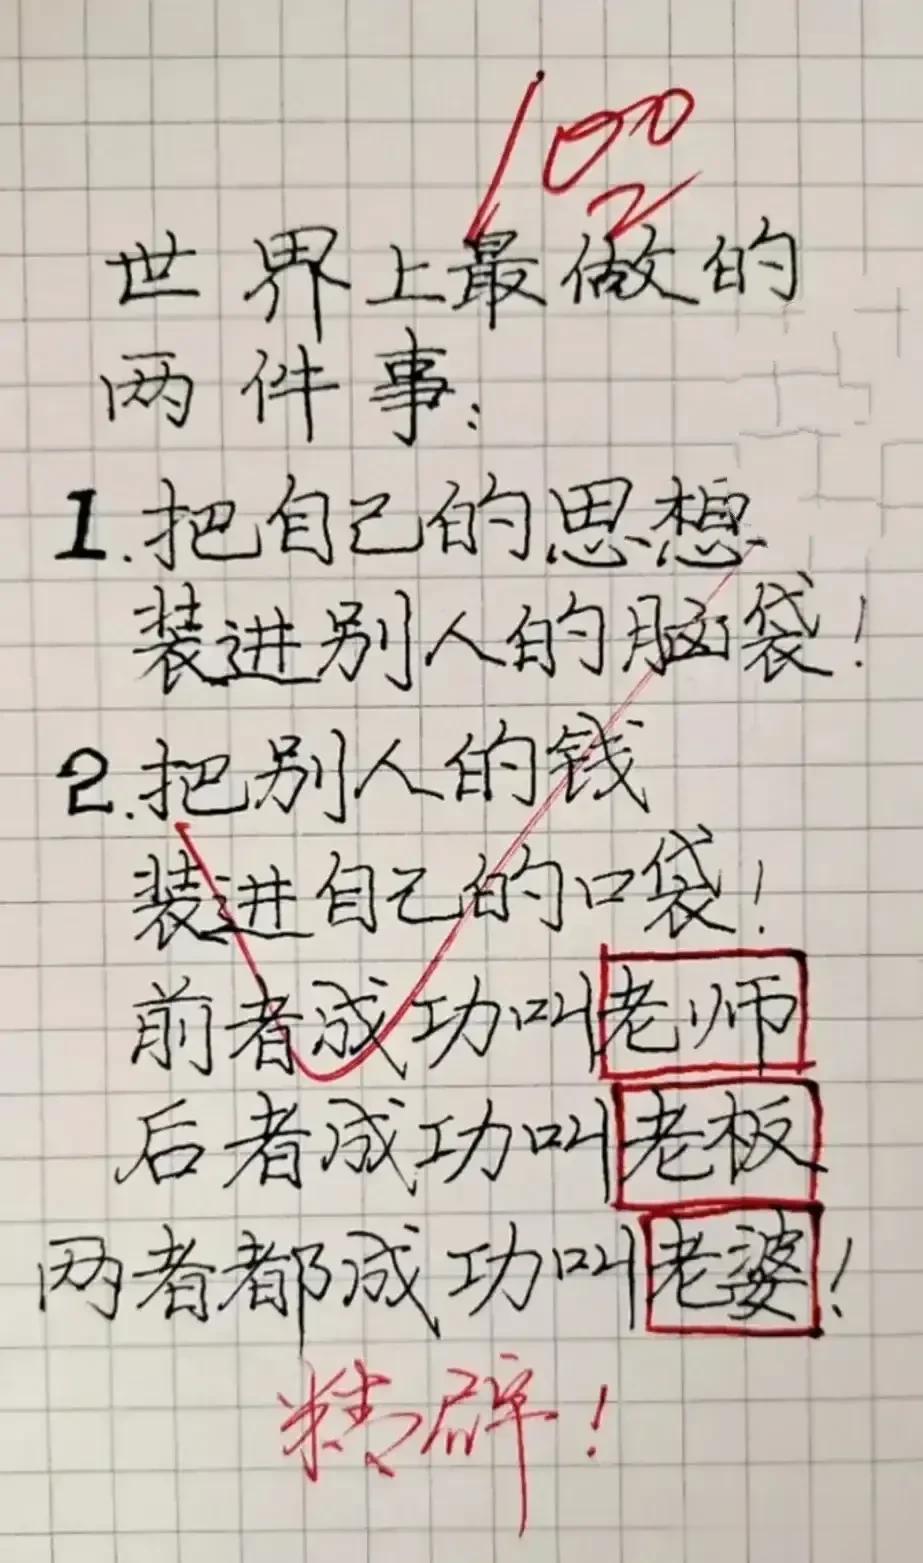 100
世界上最做的
两件事:
1.把自己的思想
装进别人的脑袋!
2.把别人的钱
装进自己的口袋!
前者成功叫老师
后者成功叫老板
两者都成功叫老婆!
精辟!